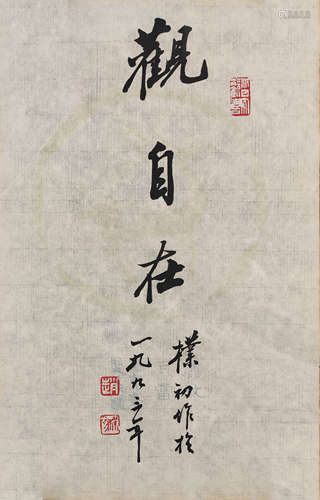 觀自在
樸初作於
一九九三年
趙